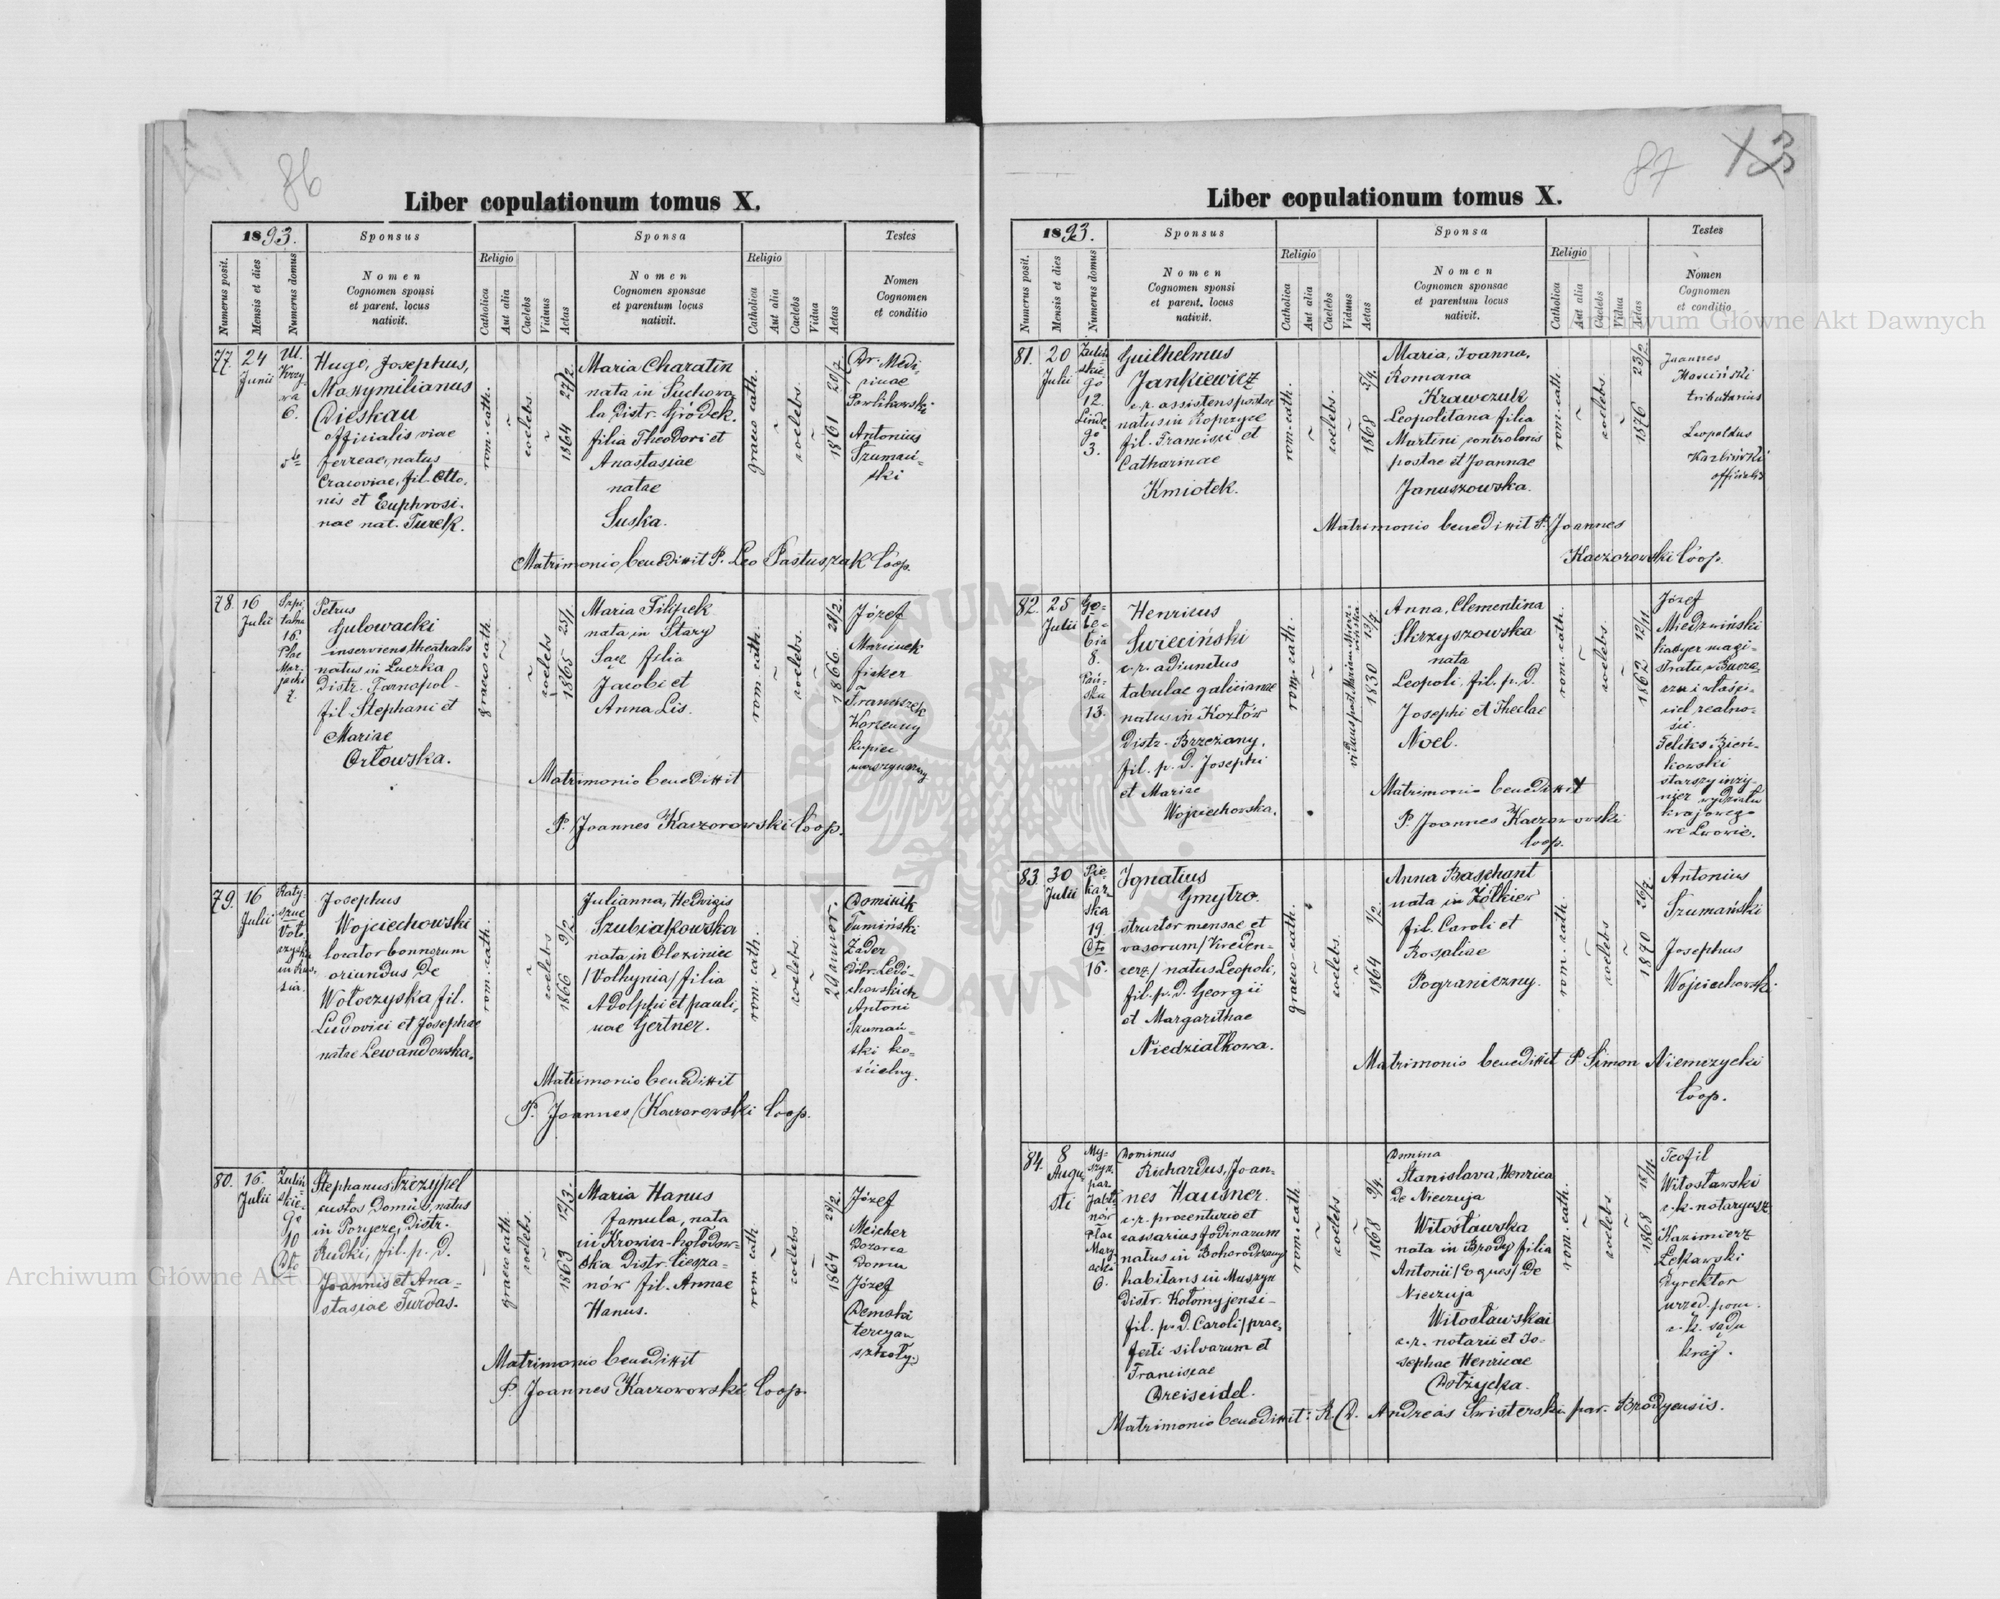 86
Liber copulationum tomus X.
1893.
Sponsus
Sponsa
Testes
Numerus posit.
Mensis et dies
Numerus domus
Nomen
Cognomen sponsi
et parent. locus
nativit.
Religio
Catholica
Aut alia
Caelebs
Viduus
Aetas
Nomen
Cognomen sponsae
et parentum locus
nativit.
Religio
Catholica
Aut alia
Caelebs
Vidua
Aetas
Nomen
Cognomen
et conditio
77.
24
Junii
6.
Hugo, Josephus,
Maxymilianus
Dieskau
officialis viae
ferreae, natus
Cracoviae, fil. Otto-
nis et Euphrosi-
nae nat. Turek.
rom. cath.
coelebs.
1864 27/2
Maria Charatin
nata in Suchowo-
la Distr. Gródek.
filia Theodori et
Anastasiae
natae
Suska.
graeco cath.
coelebs.
1861 20/7
Dr. Medi-
cinae
Pawlikowski
Antonius
Szumań-
ski
Matrimonio benedixit P. Leo Pastuszak Coop.
78.
16
Julii
Szpi
talna
16.
Plac
Mar-
jacki
7.
Petrus
Gulowacki
inserviens theatralis
natus in Luczka
Distr. Tarnopol-
fil. Stephani et
Mariae
Orłowska.
graeco cath.
coelebs
1865 25/1
Maria Filipek
nata in Stary
Sącz filia
Jacobi et
Anna Lis.
rom. cath.
coelebs.
1866. 28/2.
Józef
Marciniek
fiaker
Franciszek
Korzenny
kupiec
Matrimonio benedixit
P. Joannes Kaczorowski Coop.
79.
16
Julii
Josephus
Wojciechowski
locator bonnorum
oriundus de
Wołoczyska fil.
Ludovici et Josephae
natae Lewandowska.
rom. cath.
coelebs
1866 9/2
Julianna, Hedvigis
Szubiakowska
nata in Olexiniec
/Volhynia/ filia
Adolphi et pauli-
nae Gertner.
rom. cath.
coelebs.
29 annor.
Dominik
Tumiński
Żader
dóbr. Ledó-
chowskich
Antoni
Szumań-
ski ko-
ścielny.
Matrimonio benedixit
P. Joannes Kaczorowski Coop.
80.
16.
Julii
Zulin
skie-
go
10
Stephanus Szczypel
custos domus, natus
in Porzecze, Distr.
Rudki, fil. p. D.
Joannis et Ana-
stasiae Turdas.
graeco cath.
coelebs.
1863 12/3.
Maria Hanus
Jamula, nata
in Krowica-hołodow-
ska Distr. Ciesza-
nów fil. Annae
Hanus.
rom cath
coelebs.
1864 29/2.
Józef
Meicher
Dozorca
domu
Józef
Demski
tercyan
szkoły.
Matrimonio benedixit
P. Joannes Kaczorowski Coop.
87
Liber copulationum tomus X.
1893.
Sponsus
Sponsa
Testes
Numerus posit.
Mensis et dies
Numerus domus
Nomen
Cognomen sponsi
et parent. locus
nativit.
Religio
Catholica
Aut alia
Caelebs
Viduus
Aetas
Nomen
Cognomen sponsae
et parentum locus
nativit.
Religio
Catholica
Aut alia
Caelebs
Vidua
Aetas
Nomen
Cognomen
et conditio
81.
20
Julii
Zuliń-
skie-
go
12.
Linde-
go
3.
Guilhelmus
Jankiewicz
c.r. assistens postae
natus in Kopczyce
fil. Francisci et
Catharinae
Kmiotek.
rom. cath.
coelebs.
1868
Maria, Joanna,
Romana
Krawczuk
Leopolitana filia
Martini controloris
postae et Joannae
Januszowska.
rom. cath.
coelebs.
1876 23/2
Joannes
Marciński
tributarius
Leopoldus
officialis
Matrimonio benedixit P. Joannes
Kaczorowski Coop.
82.
25
Julii
Go-
łę-
bia
8.
Pań-
ska
13.
Henricus
Swieciński
c.r. adiunctus
tabulae galicianae
natus in Kozłów
Distr. Brzeżany,
fil. p. D. Josephi
et Mariae
Wojciechowska.
rom. cath.
1830 13/7
Anna, Clementina
Skrzyszowska
nata
Leopoli, fil. p. D.
Josephi et Theclae
Noel.
rom. cath.
coelebs.
1862 12/11
Józef
Miedzwiński
kasyer magi-
stratu w Bucza-
czu i właści-
ciel realno-
ści.
Feliks Zień-
kowski
starszy inży-
nier wydziału
krajowego
we Lwowie.
Matrimonio benedixit
P. Joannes Kaczorowski
Coop.
83.
30
Julii
Pie
kar
ska
19.
Dto
16.
Ignatius
Gmytro.
structor mensae et
vasorum /Kreden-
cerz/ natus Leopoli,
fil. p. D. Georgii
et Margarithae
Niedziałkowa.
graeco-cath.
coelebs.
1864 1/2
Anna Baschant
nata in Żółkiew
fil. Caroli et
Rosaliae
Pograniczny.
rom. cath.
coelebs
1870 26/7
Antonius
Szumański
Josephus
Wojciechowski
Matrimonio benedixit P. Simon Niemczycki
Coop.
84.
8
Augu-
sti
My-
szyn
par.
Jabło
nów
Plac
Mary
acki
6.
Dominus
Richardus, Joan-
nes Hausner
c.r. procenturio et
cassarius fodinarum
natus in Bohorodczany
habitans in Muszyn
Distr. Kołomyjensi-
fil. p. D. Caroli /prae-
fecti silvarum et
Franciscae
Dreiseidel.
rom. cath.
coelebs
1868 9/4.
Domina
Stanislava, Henrica
de Nieczuja
Witosławska
nata in Brody filia
Antonii /Eques/ de
Nieczuja
Witosławskai
c.r. notarii et Jo-
sephae Henricae
Dołżycka.
rom. cath.
coelebs
1868 18/11.
Teofil
Witosławski
c.k. notaryusz
Kazimierz
Łękawski
Dyrektor
urzęd. pom.
c.k. sądu
kraj.
Matrimonio benedixit: R. D. Andreas Swisterski par. Brodyensis.
Archiwum Główne Akt Dawnych
Archiwum Główne Akt Dawnych